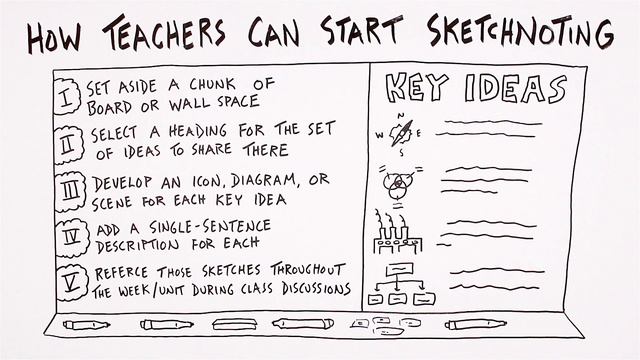 HOW TEACHERS CAN START SKETCHNOTING
I
SET ASIDE A CHUNK OF
BOARD OR WALL SPACE
II
SELECT A HEADING FOR THE SET
OF IDEAS TO SHARE THERE
III
DEVELOP AN ICON, DIAGRAM, OR
SCENE FOR EACH KEY IDEA
IV
ADD A SINGLE-SENTENCE
DESCRIPTION FOR EACH
V
REFERCE THOSE SKETCHES THROUGHOUT
THE WEEK/UNIT DURING CLASS DISCUSSIONS
KEY IDEAS
N
W E
S